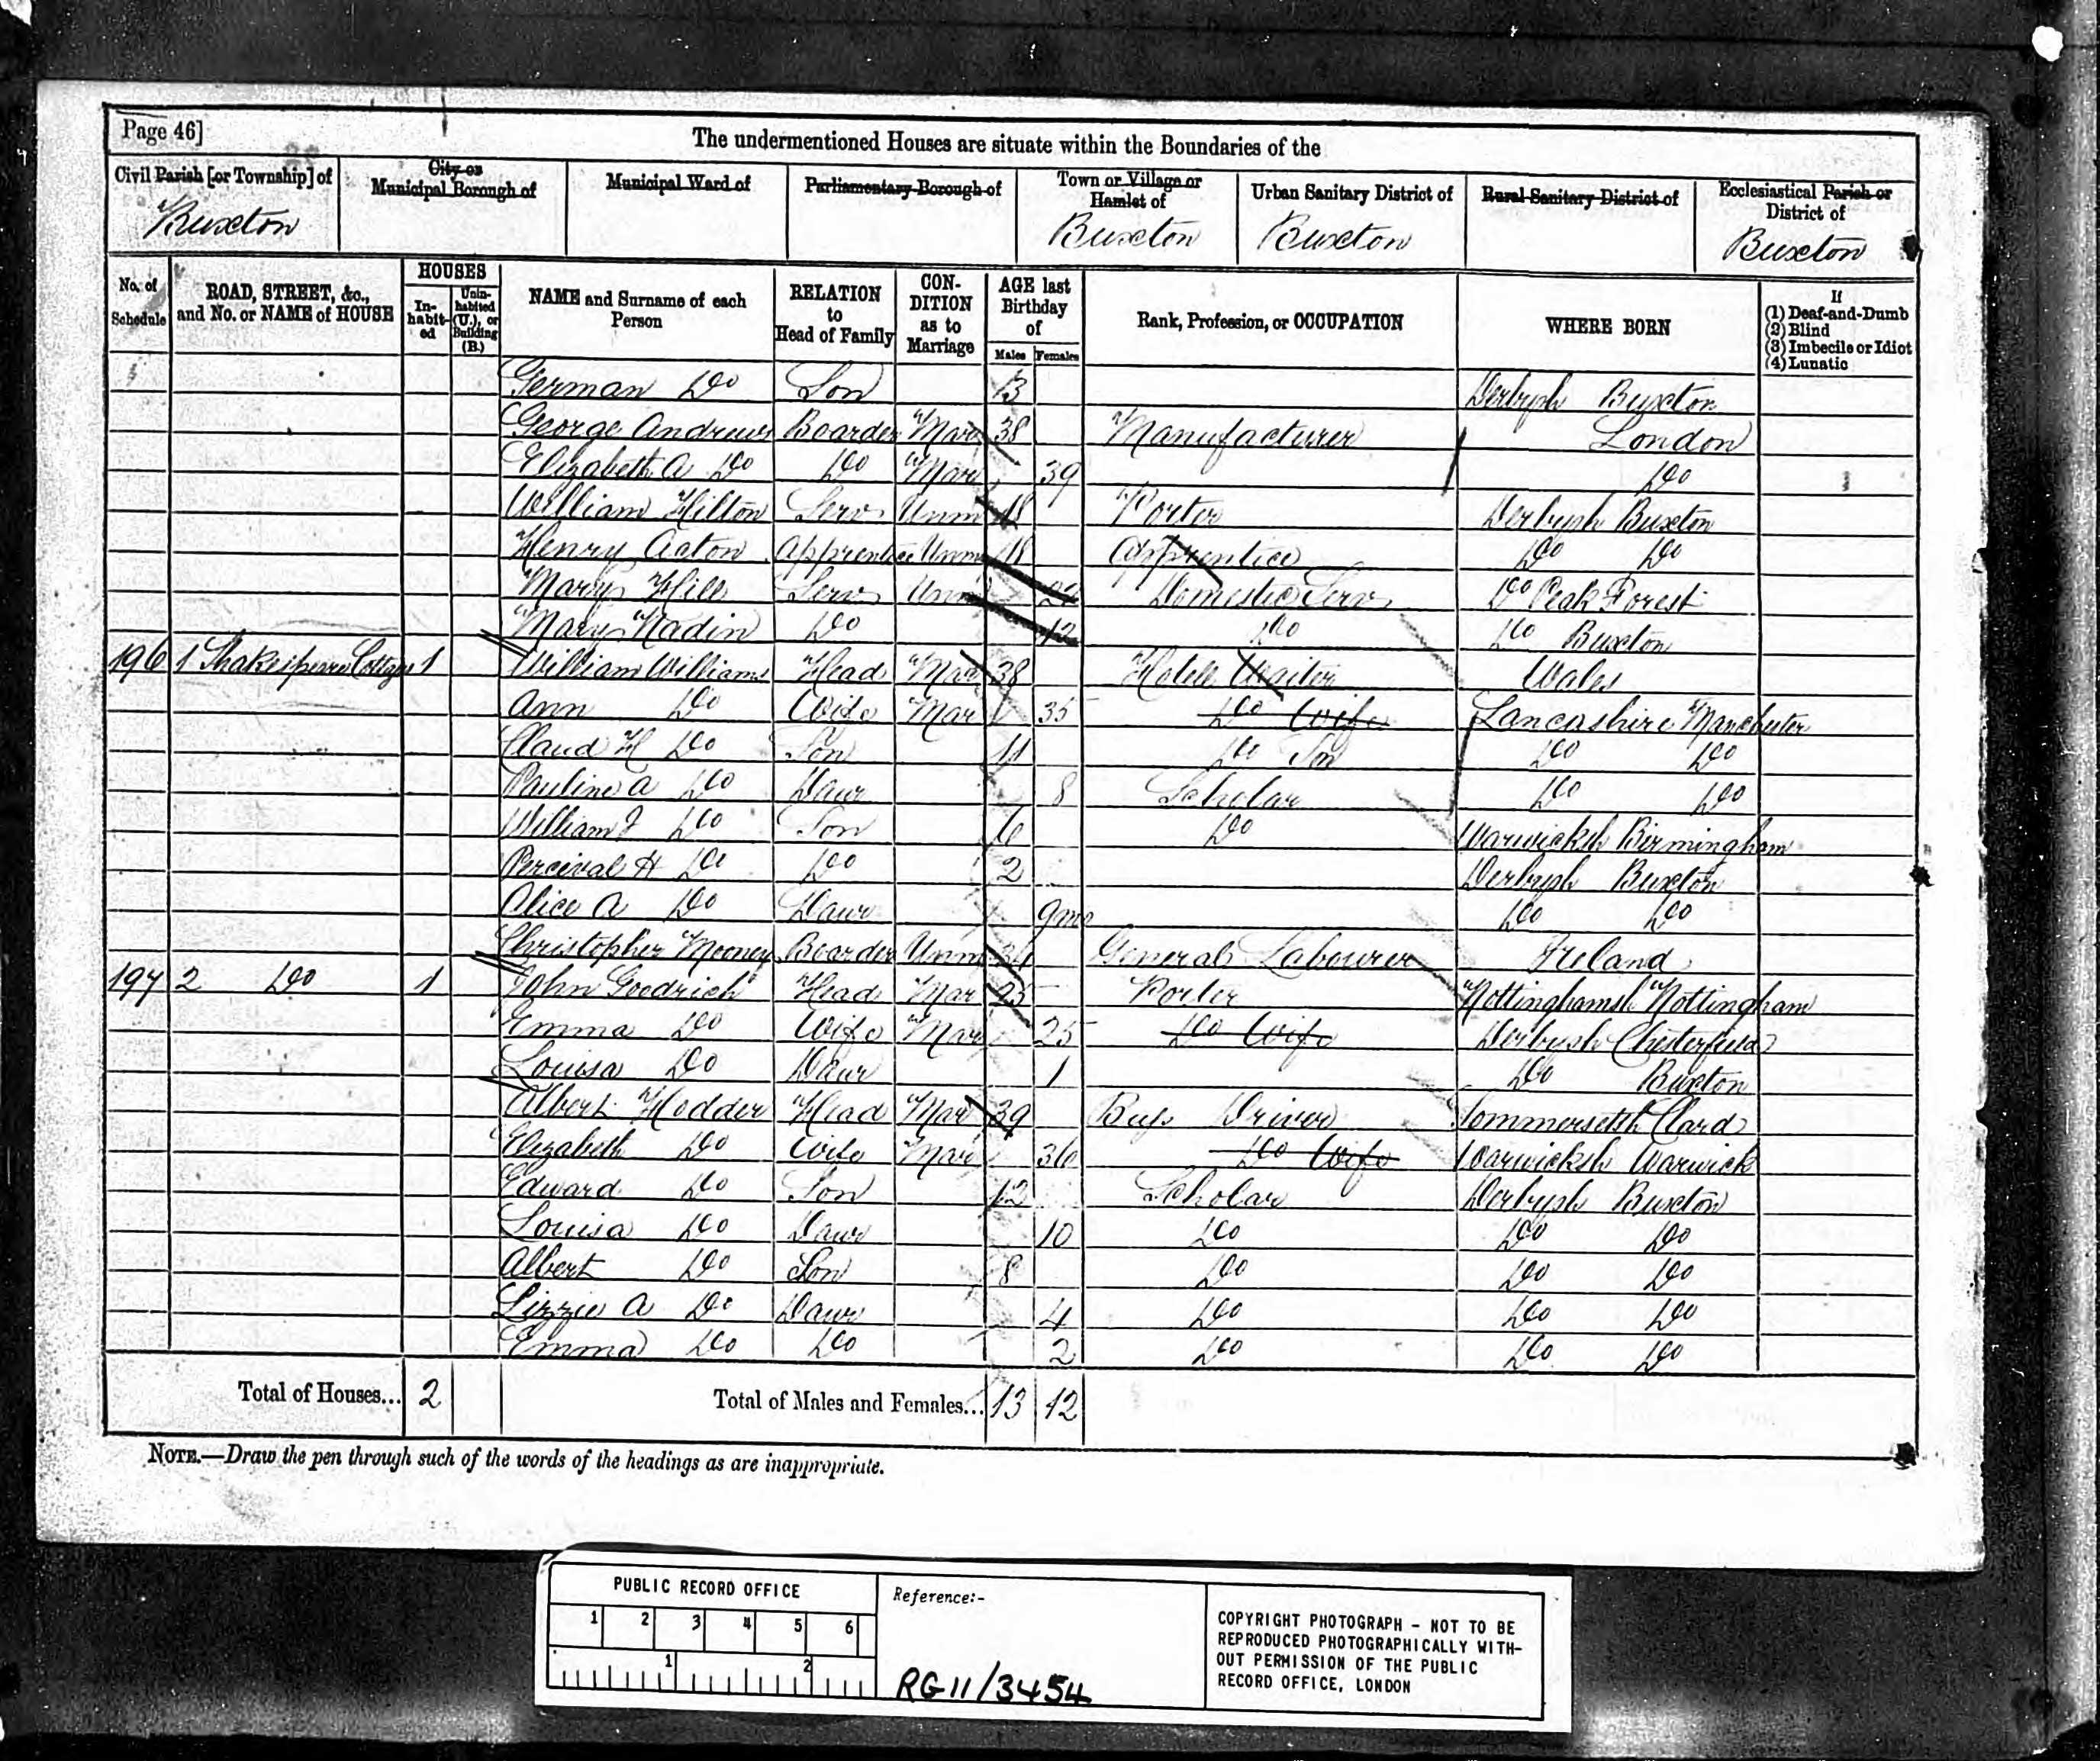 Page 46]
The undermentioned Houses are situate within the Boundaries of the
Civil Parish [or Township] of
City or Municipal Borough of
Municipal Ward of
Parliamentary Borough of
Town or Village or Hamlet of
Urban Sanitary District of
Rural Sanitary District of
Ecclesiastical Parish or District of
Buxton Buxton Buxton Buxton
No. of Schedule
ROAD, STREET, &c., and No. or NAME of HOUSE
HOUSES
Inhabited
Uninhabited (U.), or Building (B.)
NAME and Surname of each Person
RELATION to Head of Family
CONDITION as to Marriage
AGE last Birthday of
Males Females
Rank, Profession, or OCCUPATION
WHERE BORN
If
(1) Deaf-and-Dumb
(2) Blind
(3) Imbecile or Idiot
(4) Lunatic
German Do Son 13 Derbysh Buxton
George Andrews Boarder Mar 38 Manufacturer London
Elizabeth A Do Do Mar 39 Do
William Hilton Serv Unm 18 Porter Derbysh Buxton
Henry Acton Apprentice Unm 18 Apprentice Do Do
Mary Hill Serv Unm 22 Domestic Serv Do Peak Forest
Mary Nadin Do 12 Do Do Buxton
196 1 Shakespeare Cottage 1 William Williams Head Mar 38 Hotell Waiter Wales
Ann Do Wife Mar 35 Do Wife Lancashire Manchester
Claud H Do Son 11 Do Son Do Do
Pauline A Do Daur 8 Scholar Do Do
William J Do Son 6 Do Warwicksh Birmingham
Percival H Do Do 2 Derbysh Buxton
Alice A Do Daur 9mo Do Do
Christopher Mooney Boarder Unm General Labourer Ireland
197 2 Do 1 John Goodrich Head Mar 25 Porter Nottinghamsh Nottingham
Emma Do Wife Mar 25 Do Wife Derbysh Chesterfield
Louisa Do Daur 1 Do Buxton
Albert Hodder Head Mar 39 Bus Driver Sommersetsh Chard
Elizabeth Do Wife Mar 36 Do Wife Warwicksh Warwick
Edward Do Son 12 Scholar Derbysh Buxton
Louisa Do Daur 10 Do Do Do
Albert Do Son 8 Do Do Do
Lizzie A Do Daur 4 Do Do Do
Emma Do Do 2 Do Do Do
Total of Houses... 2 Total of Males and Females... 13 12
NOTE.—Draw the pen through such of the words of the headings as are inappropriate.
PUBLIC RECORD OFFICE
1 2 3 4 5 6
1 2
Reference:-
RG 11/3454
COPYRIGHT PHOTOGRAPH - NOT TO BE
REPRODUCED PHOTOGRAPHICALLY WITH-
OUT PERMISSION OF THE PUBLIC
RECORD OFFICE, LONDON